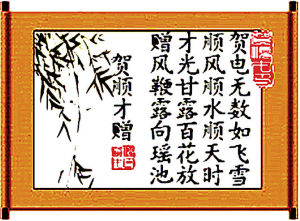 贺电无数如飞雪
顺风顺水顺天时
才光甘露百花放
赠风鞭露向瑶池
贺顺才赠